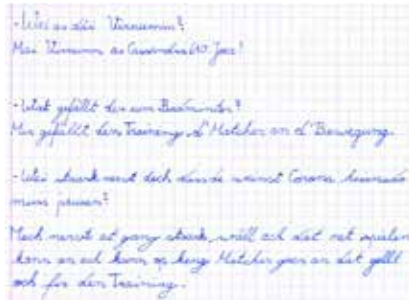 - Wéi as däi Virnumm?
Mäi Virnumm as Cassandra (10 Joer)
- Wat gefällt der um Badminton?
Mir gefällt den Training, d'Matcher an d'Bewegung.
- Wéi staark nervt dech dass de wéinst Corona
muss pausen?
Mech nervt et ganz staark, well ech dat net spielen
kann an ech kann op keng Matcher goen an dat gëllt
och fir den Training.